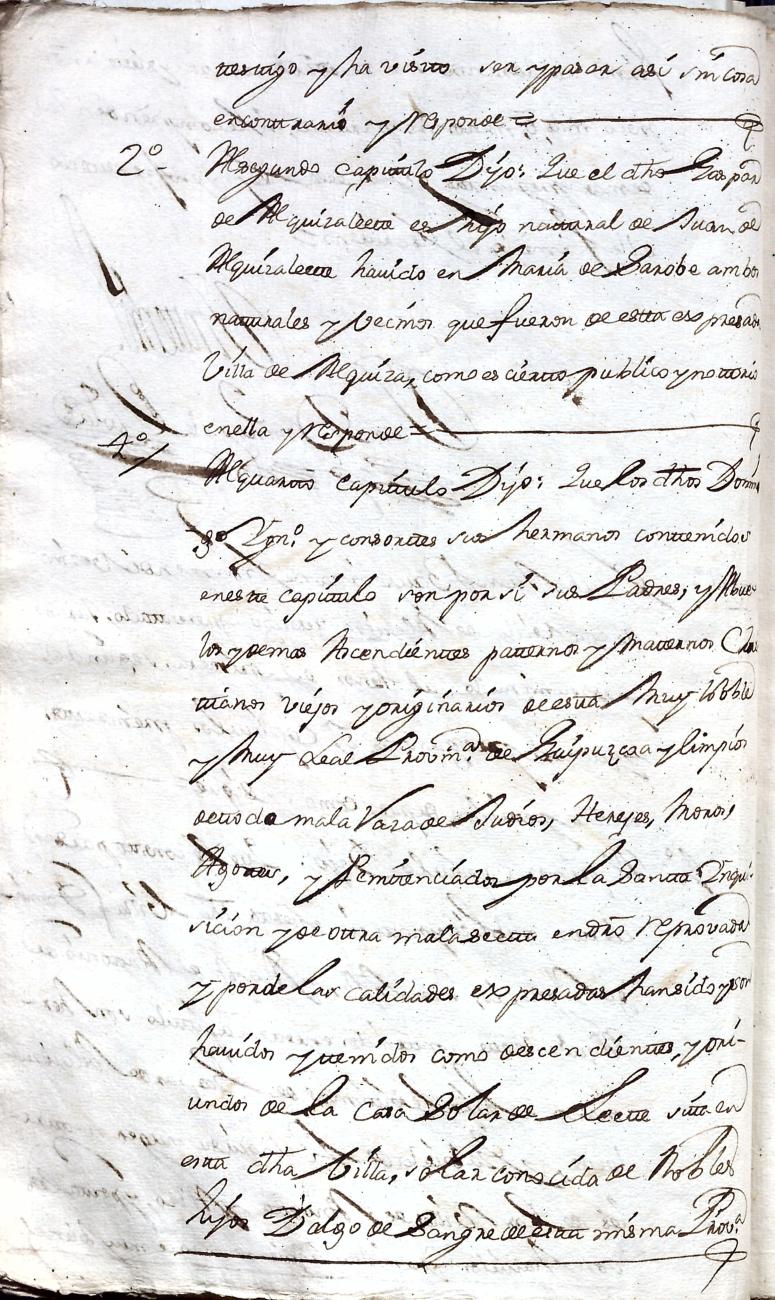 testigo y ha visto ser y pasar asi sin cosa
encontrario y responde =
2º Al segundo capitulo Dijo: Que el dho Gaspar
de Alquizalette es hijo natural de Juan de
Alquizalette havido en Maria de Sarobe ambos
naturales y vecinos que fueron de estta expresada
Villa de Alquiza, como es ciertto publico y nottorio
en ella y responde =
4º Al quartto capitulo Dijo: Que los dhos Domin
go Ygnº y consorttes sus hermanos conttenidos
en estte capitulo son por si sus Padres, y Abue
los y demas Ascendienttes patternos y matternos Chris
ttianos viejos y originarios de estta Muy Noble
y Muy Leal Provinª de Guipuzcoa y limpios
de ttoda mala Raza de Judios, Herejes, Moros,
Agottes, y Penittenciados por la Santta Ynqui-
sicion y de ottra mala sectta en dro reprovada
y por de las calidades expresadas han sido y son
havidos y ttenidos como descendienttes, y ori-
undos de la Casa Solar de Lette sitta en
estta dha Villa, solar conocida de Nobles
hijos Dalgo de Sangre de estta misma Provª